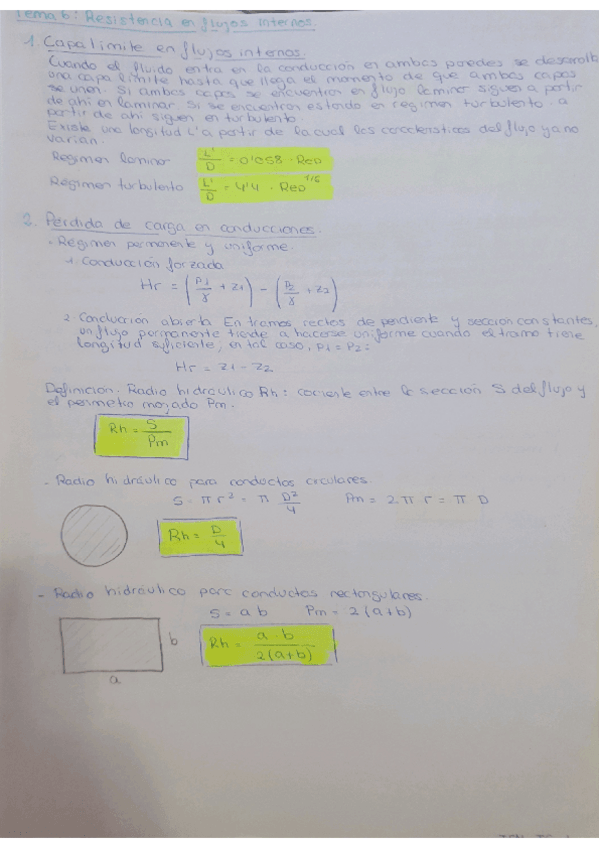 Tema 6: Resistencia en flujos internos.
1. Capa limite en flujos internos.
Cuando el fluido entra en la conducción en ambas paredes se desarrolla
una capa limite hasta que llega el momento de que ambas capas
se unen. Si ambas capas se encuentran en flujo laminar siguen a partir
de ahi en laminar. Si se encuentran estando en regimen turbulento. a
partir de ahi siguen en turbulento
Existe una longitud L' a partir de la cual las caracteristicas del flujo ya no
varian.
Regimen laminar L'/D = 0'058 · ReD
Regimen turbulento L'/D = 4'4 · ReD^1/6
2. Perdida de carga en conducciones.
- Regimen permanente y uniforme.
1. Conducción forzada
Hr = (P1/γ + z1) - (P2/γ + z2)
2. Conduccion abierta En tramos rectos de pendiente y seccion constantes,
un flujo permanente tiende a hacerse uniforme cuando el tramo tiene
longitud suficiente, en tal caso, P1 = P2:
Hr = z1 - z2
Definicion. Radio hidráulico Rh: cociente entre la sección S del flujo y
el perimetro mojado Pm.
Rh = S/Pm
- Radio hidráulico para conductos circulares.
S = π r² = π D²/4 Pm = 2 π r = π D
Rh = D/4
- Radio hidráulico para conductos rectangulares.
S = a b Pm = 2(a+b)
b
Rh = a · b/2(a+b)
a